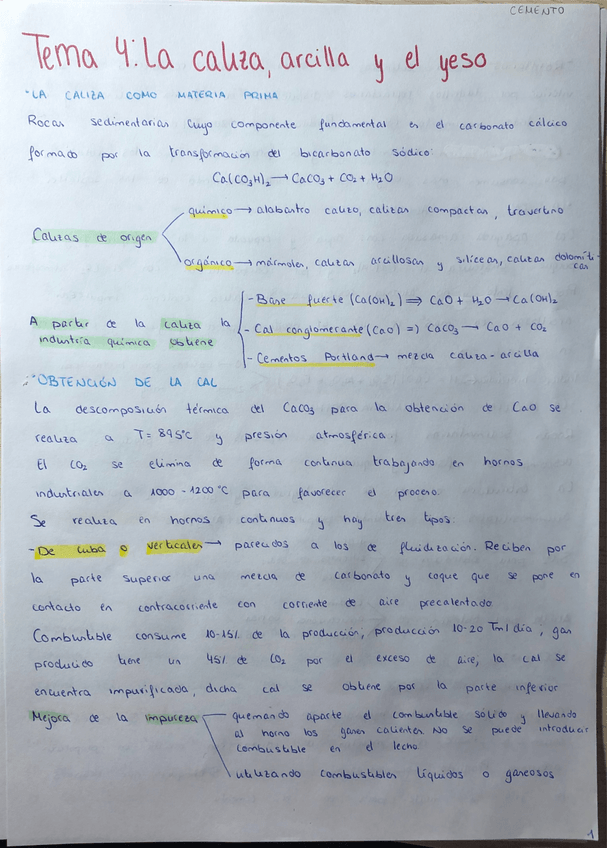 CEMENTO
Tema 4: La caliza, arcilla y el yeso
·LA CALIZA COMO MATERIA PRIMA
Rocas sedimentarias cuyo componente fundamental es el carbonato cálcico
formado por la transformación del bicarbonato sódico:
Ca(CO₃H)₂ → CaCO₃ + CO₂ + H₂O
químico → alabastro calizo, calizas compactas, travertino
Calizas de origen
orgánico → mármoles, calizas arcillosas y silíceas, calizas dolomíti-
cas
- Base fuerte (Ca(OH)₂) ⇒ CaO + H₂O → Ca(OH)₂
A partir de la caliza la
industria química obtiene
- Cal conglomerante (CaO) => CaCO₃ → CaO + CO₂
- Cementos Portland → mezcla caliza-arcilla
·OBTENCIÓN DE LA CAL
La descomposición térmica del CaCO₃ para la obtención de CaO se
realiza a T= 895°C y presión atmosférica.
El CO₂ se elimina de forma continua trabajando en hornos
industriales a 1000-1200°C para favorecer el proceso.
Se realiza en hornos continuos y hay tres tipos:
- De cuba o verticales → parecidos a los de fluidización. Reciben por
la parte superior una mezcla de carbonato y coque que se pone en
contacto en contracorriente con corriente de aire precalentado
Combustible consume 10-15% de la producción, producción 10-20 Tm/día, gas
producido tiene un 45% de CO₂ por el exceso de aire, la cal se
encuentra impurificada, dicha cal se obtiene por la parte inferior
Mejora de la impureza
quemando aparte el combustible sólido y llevando
al horno los gases calientes. No se puede introducir
combustible en el lecho.
utilizando combustibles líquidos o gaseosos
1